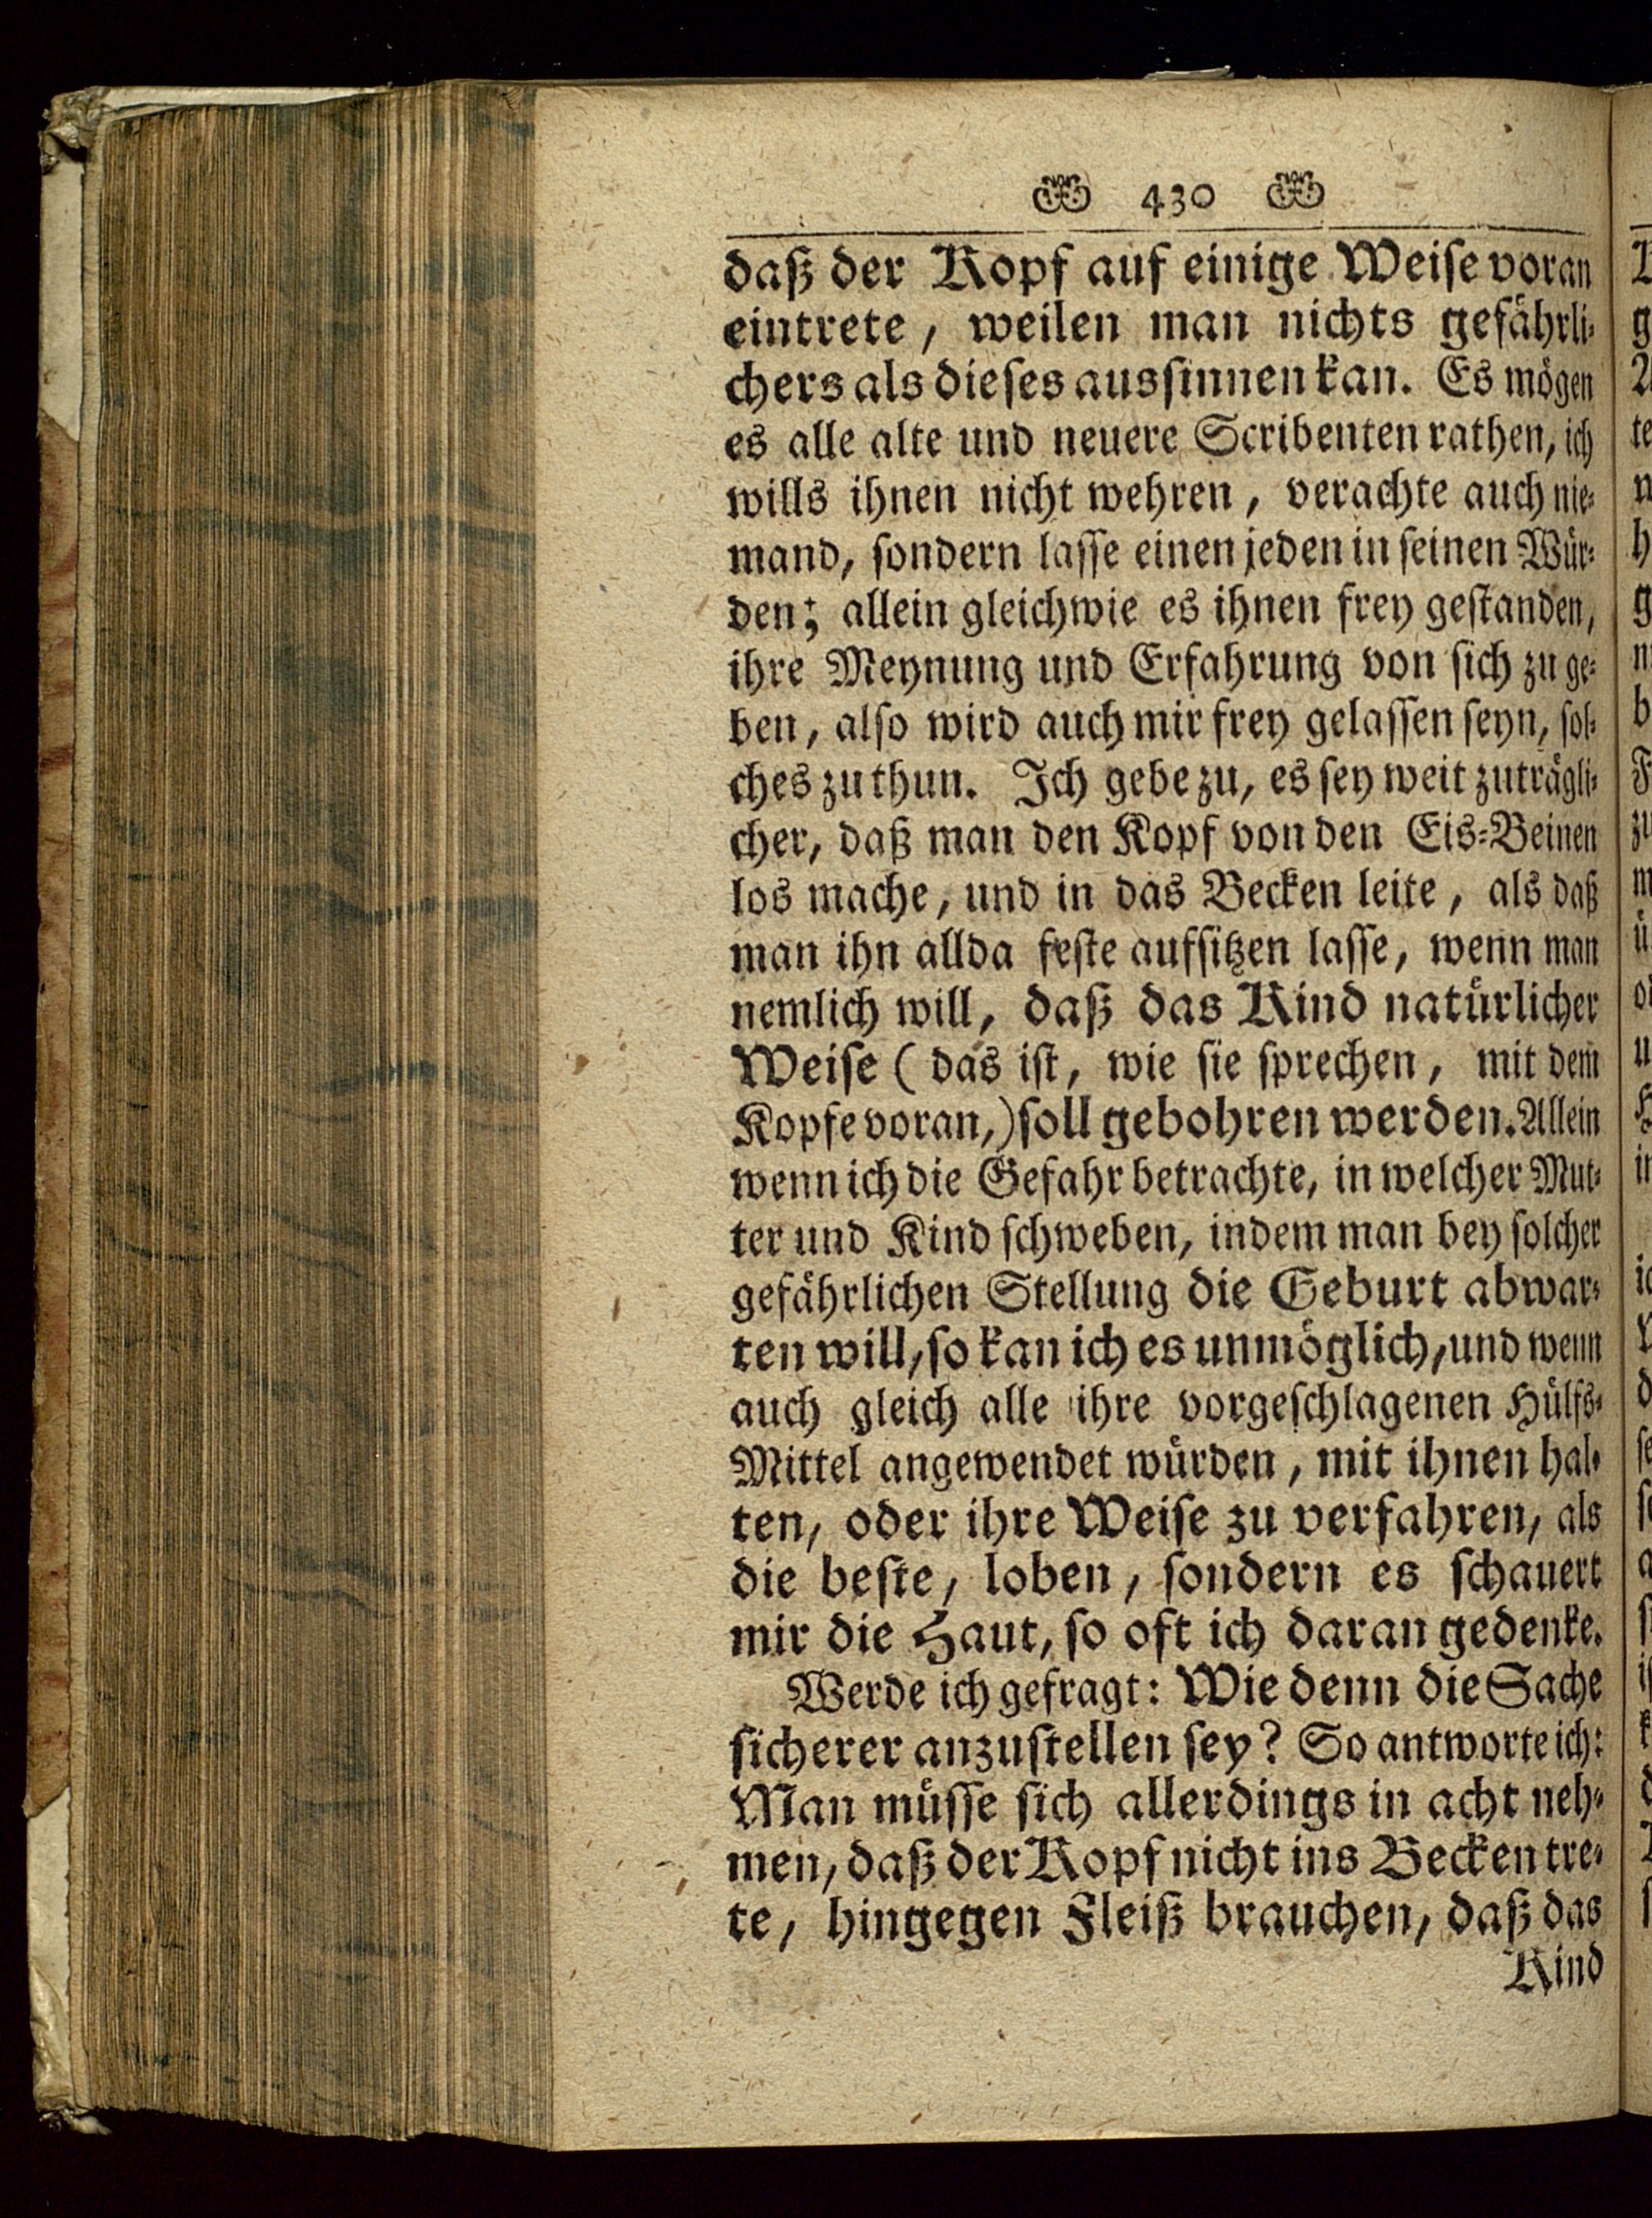 430
daß der Kopf auf einige Weiſe voran
eintrete, weilen man nichts gefaͤhrli⸗
chers als dieſes ausſinnen kan. Es moͤgen
es alle alte und neuere Scribenten rathen, ich
wills ihnen nicht wehren, verachte auch nie⸗
mand, ſondern laſſe einen jeden in ſeinen Wuͤr⸗
den; allein gleichwie es ihnen frey geſtanden,
ihre Meynung und Erfahrung von ſich zu ge⸗
ben, alſo wird auch mir frey gelaſſen ſeyn, ſol⸗
ches zu thun. Ich gebe zu, es ſey weit zutraͤgli⸗
cher, daß man den Kopf von den Eis⸗Beinen
los mache, und in das Becken leite, als daß
man ihn allda feſte aufſitzen laſſe, wenn man
nemlich will, daß das Kind natuͤrlicher
Weiſe (das iſt, wie ſie ſprechen, mit dem
Kopfe voran,) ſoll gebohren werden. Allein
wenn ich die Gefahr betrachte, in welcher Mut⸗
ter und Kind ſchweben, indem man bey ſolcher
gefaͤhrlichen Stellung die Geburt abwar⸗
ten will, ſo kan ich es unmoͤglich, und wenn
auch gleich alle ihre vorgeſchlagenen Huͤlfs⸗
Mittel angewendet wuͤrden, mit ihnen hal⸗
ten, oder ihre Weiſe zu verfahren, als
die beſte, loben, ſondern es ſchauert
mir die Haut, ſo oft ich daran gedenke.
Werde ich gefragt: Wie denn die Sache
ſicherer anzuſtellen ſey? So antworte ich:
Man muͤſſe ſich allerdings in acht neh⸗
men, daß der Kopf nicht ins Becken tre⸗
te, hingegen Fleiß brauchen, daß das
Kind